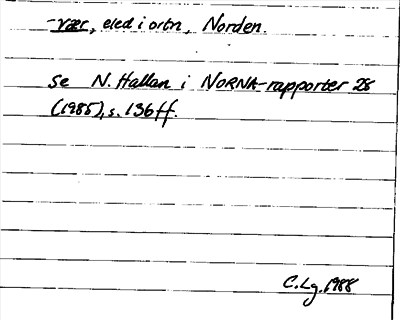 -vær, eled i ortn, Norden.
Se N. Hallan i NORNA-rapporter 28
(1985), s. 136 ff.
C. Lg. 1988